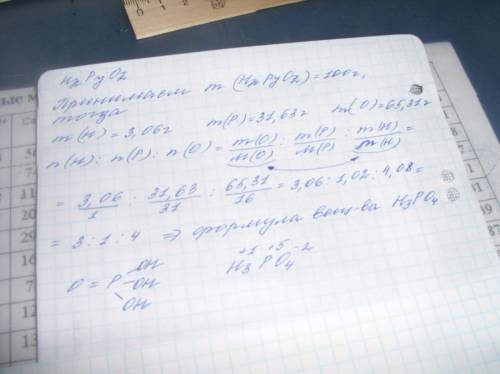 HxPyOz
Принимаем m (HxPyOz) = 100г,
тогда
m(H) = 3,06г m(P) = 31,63г m(O) = 65,31г
n(H) : n(P) : n(O) = m(O)/M(O) : m(P)/M(P) : m(H)/M(H) =
= 3,06/1 : 31,63/31 : 65,31/16 = 3,06 : 1,02 : 4,08 =
= 3 : 1 : 4 ⇒ формула вещ-ва H₃PO₄
+1 +5 -2
H₃PO₄
OH
O = P - OH
OH